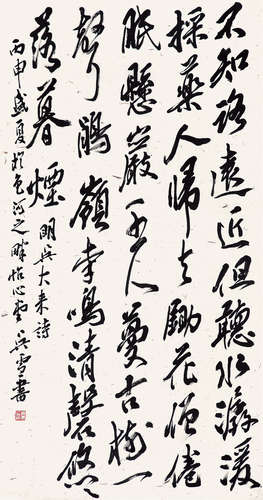 不知路遠近但聽水潺湲
採藥人歸去鋤花僧倦
眠懸巖千尺蔓古樹一
聲鵑嶺寺鳴清磬悠〻
落暮煙 明吳大來詩
丙申盛夏於包河之畔怡心堂吳雪書